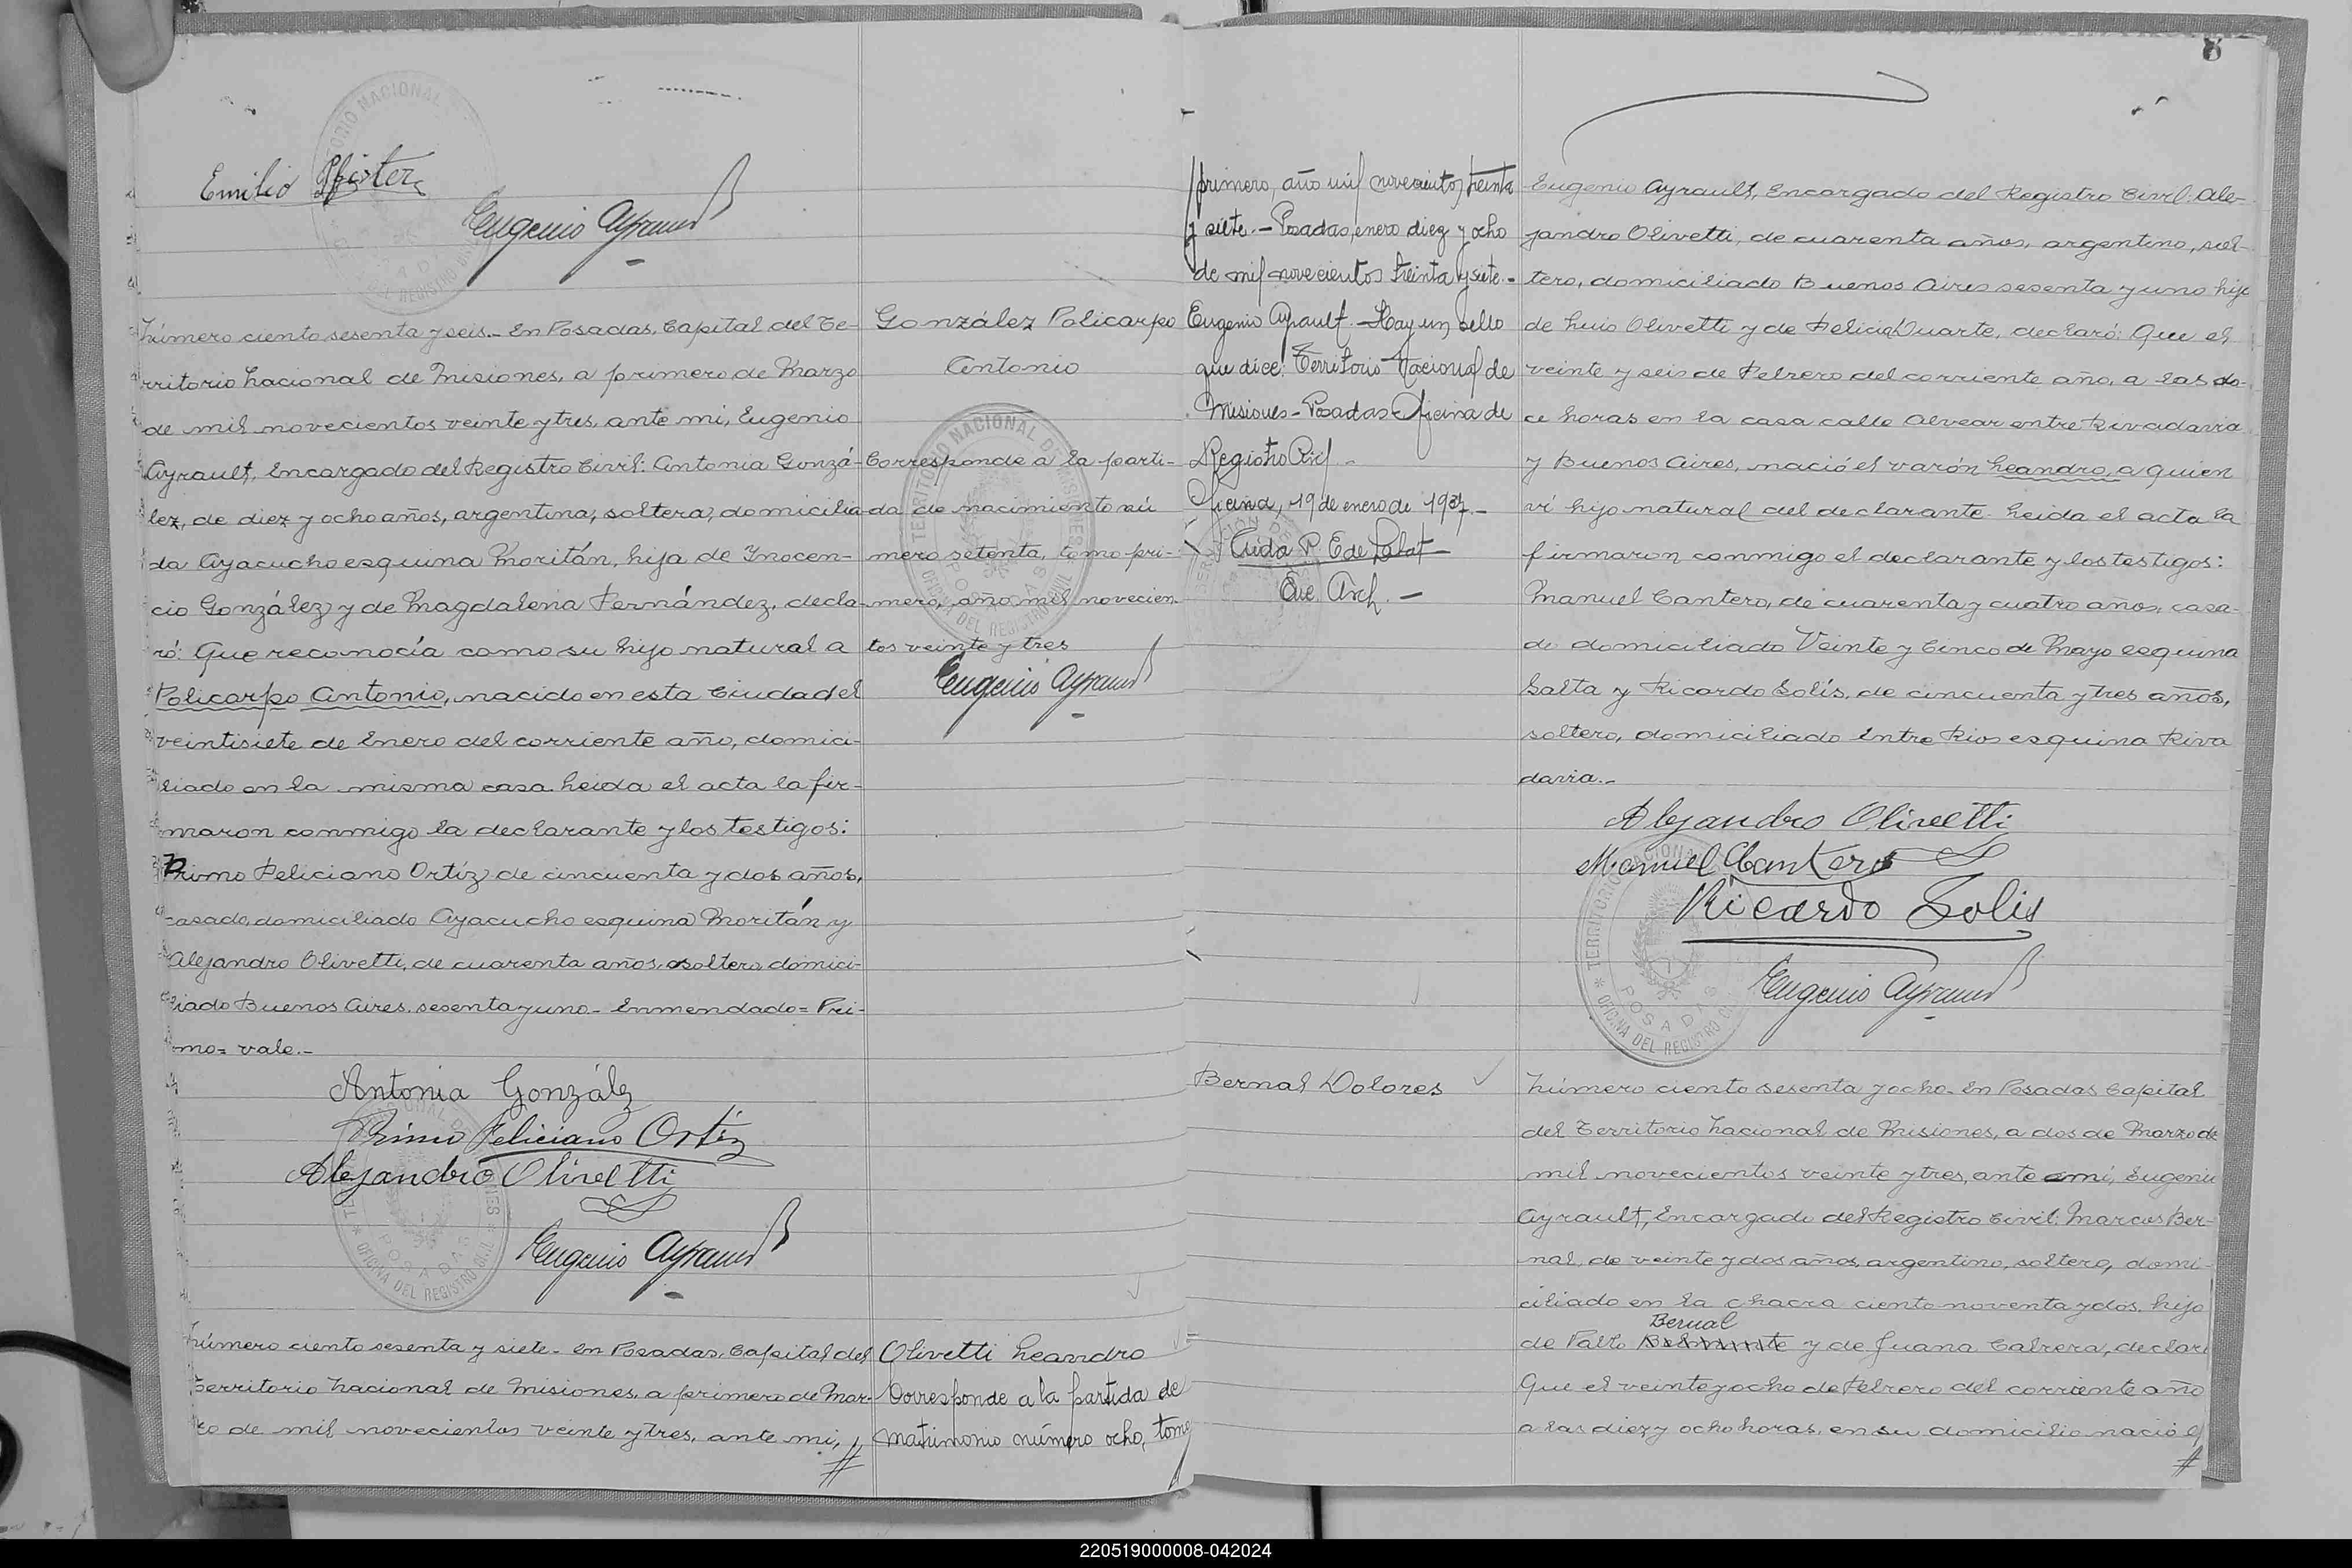 Emilio Pfister
Eugenio Ayrault
Número ciento sesenta y seis.- En Posadas, Capital del Te-
rritorio Nacional de Misiones, a primero de Marzo
de mil novecientos veinte y tres, ante mi, Eugenio
Ayrault, Encargado del Registro Civil: Antonia Gonzá-
lez, de diez y ocho años, argentina, soltera, domicilia-
da Ayacucho esquina Moritán, hija de Inocen-
cio González y de Magdalena Fernández, decla-
ró: Que reconocía como su hijo natural a
Policarpo Antonio, nacido en esta Ciudad el
veintisiete de Enero del corriente año, domici-
liado en la misma casa. Leida el acta la fir-
maron conmigo la declarante y los testigos:
Primo Feliciano Ortíz, de cincuenta y dos años,
casado, domiciliado Ayacucho esquina Moritán y
Alejandro Olivetti, de cuarenta años, soltero, domici-
liado Buenos Aires, sesenta y uno - Enmendado= Pri-
mo= vale.-
Antonia González
Primo Feliciano Ortíz
Alejandro Olivetti
Eugenio Ayrault
Número ciento sesenta y siete - En Posadas, Capital del
Territorio Nacional de Misiones, a primero de Mar-
zo de mil novecientos veinte y tres, ante mi,
González Policarpo
Antonio
Corresponde a la parti-
da de nacimiento nú
mero setenta, tomo pri-
mero, año mil novecien-
tos veinte y tres
Eugenio Ayrault
Olivetti Leandro
Corresponde a la partida de
matrimonio número ocho, tomo
primero, año mil novecientos treinta
y siete.- Posadas, enero diez y ocho
de mil novecientos treinta y siete.-
Eugenio Ayrault.- Hay un sello
que dice: Territorio Nacional de
Misiones - Posadas - Oficina de
Registro Civil.-
Oficina, 19 de enero de 1937.-
Aida P. E de
Enc. Arch. -
Eugenio Ayrault, Encargado del Registro Civil: Ale-
jandro Olivetti, de cuarenta años, argentino, sol-
tero, domiciliado Buenos Aires sesenta y uno hijo
de Luis Olivetti y de Felicia Duarte, declaró: Que el
veinte y seis de Febrero del corriente año, a las do-
ce horas en la casa calle Alvear entre Rivadavia
y Buenos Aires, nació el varón Leandro, a quien
ví hijo natural del declarante. Leida el acta la
firmaron conmigo el declarante y los testigos:
Manuel Cantero, de cuarenta y cuatro años, casa-
do domiciliado Veinte y Cinco de Mayo esquina
Salta y Ricardo Solís, de cincuenta y tres años,
soltero, domiciliado Entre Rios esquina Riva
davia.-
Alejandro Olivetti
Manuel Cantero
Ricardo Solis
Eugenio Ayrault
Bernal Dolores
Número ciento sesenta y ocho - En Posadas Capital
del Territorio Nacional de Misiones, a dos de Marzo de
mil novecientos veinte y tres, ante mi, Eugenio
Ayrault, Encargado del Registro Civil: Marcos Ber-
nal, de veinte y dos años, argentino, soltero, domi-
ciliado en la chacra ciento noventa y dos, hijo
Bernal
de Pablo y de Juana Cabrera, declaró
Que el veinte y ocho de Febrero del corriente año
a las diez y ocho horas, en su domicilio nació el
220519000008-042024